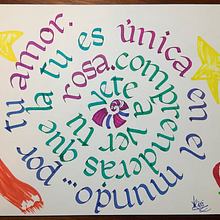 Vete a ver tu rosa.comprenderás que la tu es única en el mundo...por tu amor.